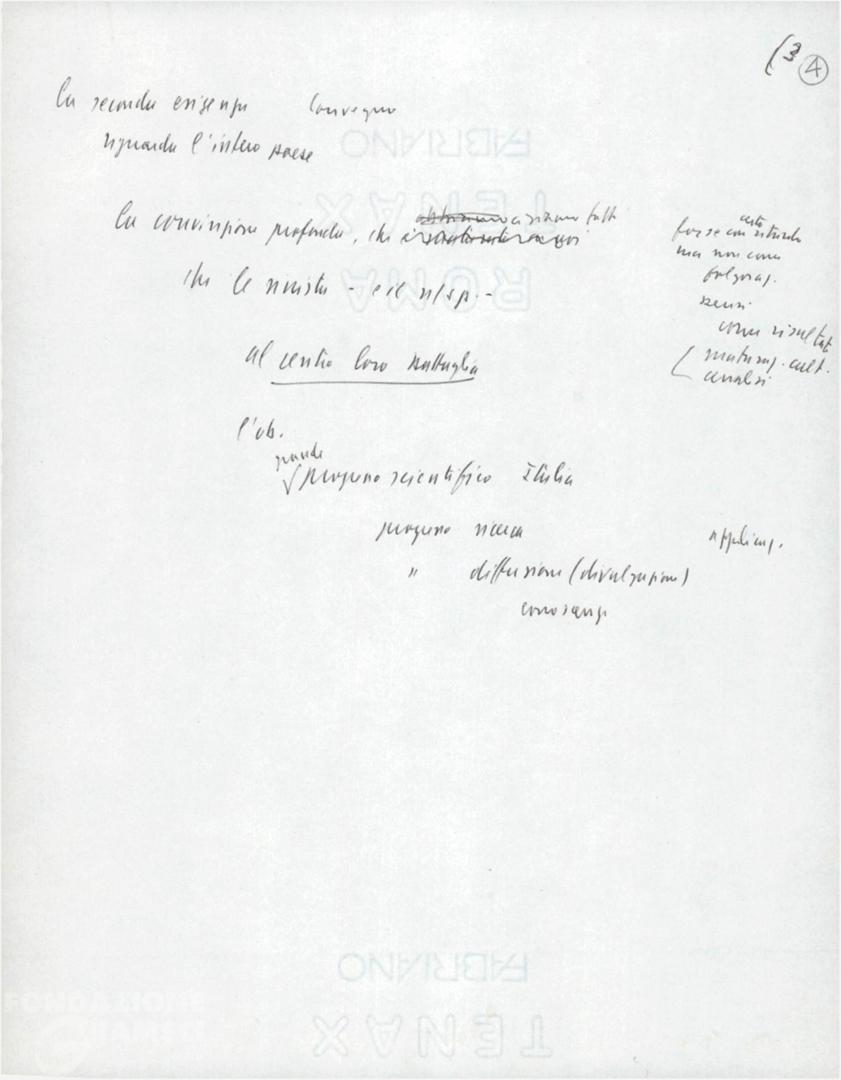 (3 4
La seconda esigenza Convegno
riguarda l'intero paese
La convinzione profonda, che ci siamo tutti
che le sinistre - e il
al centro loro battaglia
l'ob.
grande
progresso scientifico Italia
progresso ricerca applicaz.
" diffusione (divulgazione)
conoscenze
certo
forse con ritardo
ma non come
folgoraz.
bensì
come risultato
maturaz. cult.
analisi
FABRIANO
TENAX
ROMA
FABRIANO
TENAX
FONDAZIONE
GRAMSCI